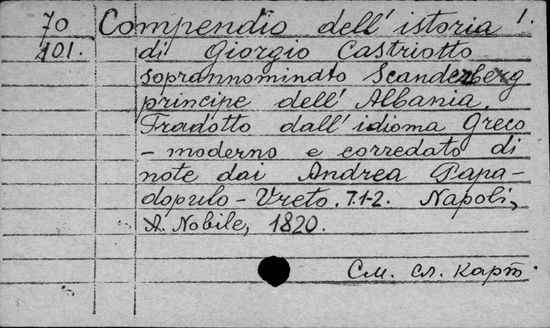 70 Compendio dell' istoria 1.
101. di Giorgio Castriotto
soprannominato Scanderberg
principe dell' Albania.
Tradotto dall' idioma Greco
- moderno e corredato di
note dai Andrea Papa-
dopulo - Vreto. T.1-2. Napoli,
A. Nobile, 1820.
См. сл. карт.